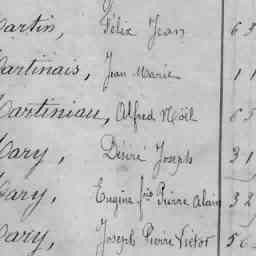 artin, Félix Jean 63
artinais, Jean Marie 11
artiniau, Alfred Noël 65
ary, Désiré Joseph 31
ary, Eugène fcis Pierre Alain 32
ary, Joseph Pierre Victor 56